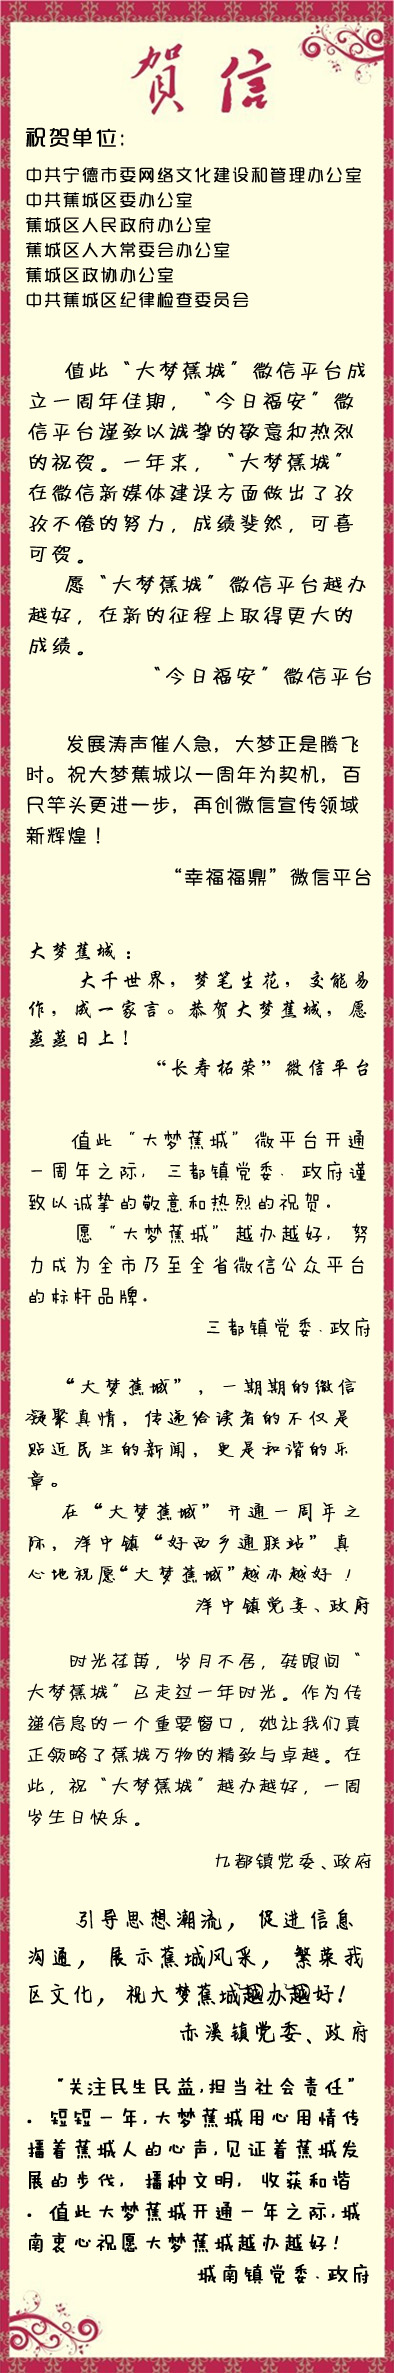 贺信
祝贺单位:
中共宁德市委网络文化建设和管理办公室
中共蕉城区委办公室
蕉城区人民政府办公室
蕉城区人大常委会办公室
蕉城区政协办公室
中共蕉城区纪律检查委员会
值此“大梦蕉城”微信平台成
立一周年佳期，“今日福安”微
信平台谨致以诚挚的敬意和热烈
的祝贺。一年来，“大梦蕉城”
在微信新媒体建设方面做出了孜
孜不倦的努力，成绩斐然，可喜
可贺。
愿“大梦蕉城”微信平台越办
越好，在新的征程上取得更大的
成绩。
“今日福安”微信平台
发展涛声催人急，大梦正是腾飞
时。祝大梦蕉城以一周年为契机，百
尺竿头更进一步，再创微信宣传领域
新辉煌！
“幸福福鼎”微信平台
大梦蕉城：
大千世界，梦笔生花，交能易
作，成一家言。恭贺大梦蕉城，愿
蒸蒸日上！
“长寿柘荣”微信平台
值此“大梦蕉城”微平台开通
一周年之际，三都镇党委、政府谨
致以诚挚的敬意和热烈的祝贺。
愿“大梦蕉城”越办越好，努
力成为全市乃至全省微信公众平台
的标杆品牌。
三都镇党委、政府
“大梦蕉城”，一期期的微信
凝聚真情，传递给读者的不仅是
贴近民生的新闻，更是和谐的乐
章。
在“大梦蕉城”开通一周年之
际，洋中镇“好西乡通联站”真
心地祝愿“大梦蕉城”越办越好！
洋中镇党委、政府
时光荏苒，岁月不居，转眼间“
大梦蕉城”已走过一年时光。作为传
递信息的一个重要窗口，她让我们真
正领略了蕉城万物的精致与卓越。在
此，祝“大梦蕉城”越办越好，一周
岁生日快乐。
九都镇党委、政府
引导思想潮流，促进信息
沟通，展示蕉城风采，繁荣我
区文化，祝大梦蕉城越办越好！
赤溪镇党委、政府
“关注民生民益，担当社会责任”
。短短一年，大梦蕉城用心用情传
播着蕉城人的心声，见证着蕉城发
展的步伐，播种文明，收获和谐
。值此大梦蕉城开通一年之际，城
南衷心祝愿大梦蕉城越办越好！
城南镇党委、政府